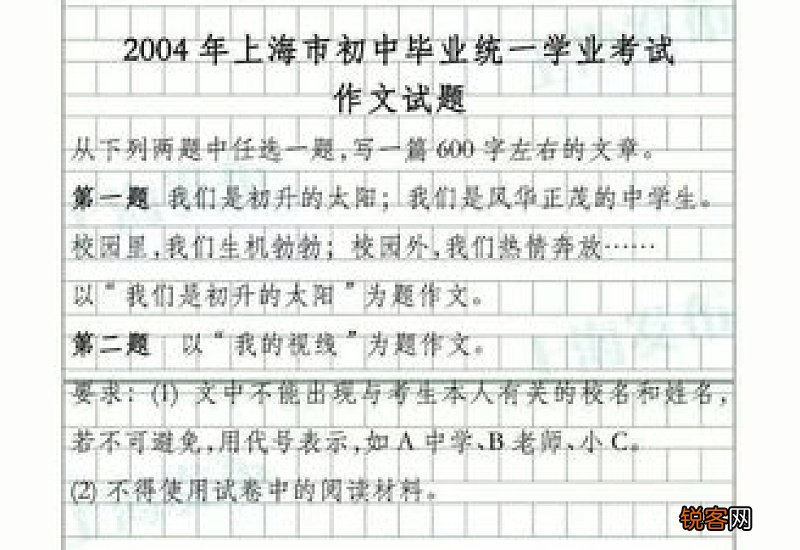 2004 年上海市初中毕业统一学业考试
作文试题
从下列两题中任选一题,写一篇 600 字左右的文章。
第一题 我们是初升的太阳；我们是风华正茂的中学生。
校园里,我们生机勃勃；校园外,我们热情奔放……
以“我们是初升的太阳”为题作文。
第二题 以“我的视线”为题作文。
要求：(1) 文中不能出现与考生本人有关的校名和姓名,
若不可避免,用代号表示,如 A 中学、B 老师、小 C。
(2) 不得使用试卷中的阅读材料。
锐客网